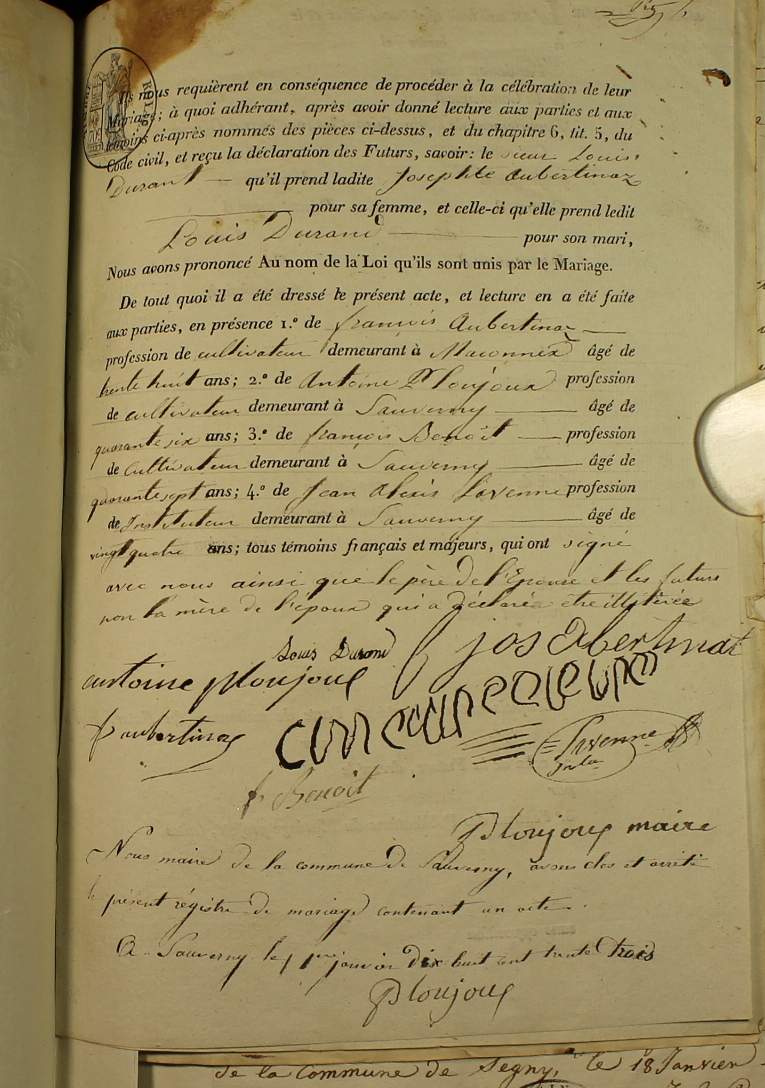 Ils nous requièrent en conséquence de procéder à la célébration de leur
Mariage; à quoi adhérant, après avoir donné lecture aux parties et aux
témoins ci-après nommés des pièces ci-dessus, et du chapitre 6, tit. 5, du
Code civil, et reçu la déclaration des Futurs, savoir: le sieur Louis
Durant qu'il prend ladite Josephte aubertinaz
pour sa femme, et celle-ci qu'elle prend ledit
Louis Durand pour son mari,
Nous avons prononcé Au nom de la Loi qu'ils sont unis par le Mariage.
De tout quoi il a été dressé le présent acte, et lecture en a été faite
aux parties, en présence 1.º de françois Aubertinaz
profession de cultivateur demeurant à Maconnex âgé de
trente huit ans; 2.º de Antoine Ploujoux profession
de cultivateur demeurant à Sauverny âgé de
quarante six ans; 3.º de françois Benoit profession
de Cultivateur demeurant à Sauverny âgé de
quarante sept ans; 4.º de Jean Alexis Lavenne profession
de Instituteur demeurant à Sauverny âgé de
vingt quatre ans; tous témoins français et majeurs, qui ont signé
avec nous ainsi que le père de l'Epouse et les futurs
non la mère de l'époux qui a déclaré être illitérée
Louis Durand jos
antoine ploujoux
f aubertinaz
f Benoit
Ploujoux maire
Nous maire de la commune de Sauverny, avons clos et arrêté
le présent régistre de mariage contenant un acte.
A Sauverny le 1er janvier dix huit cent trente trois
Ploujoux
de la Commune de Segny, le 18 Janvier